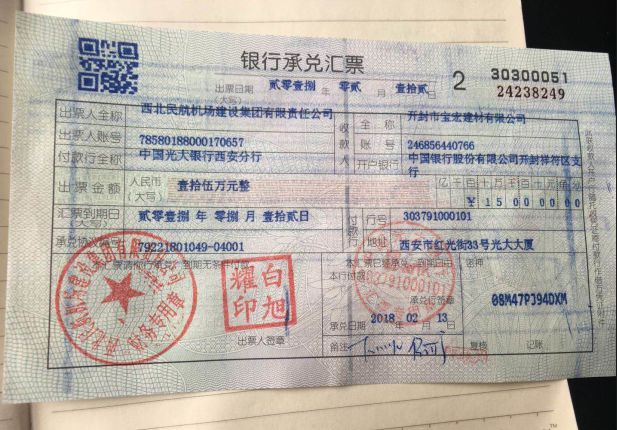 银行承兑汇票
2
30300051
24238249
出票日期(大写) 贰零壹捌 年 零贰 月 壹拾贰 日
出票人全称 西北民航机场建设集团有限责任公司
收款人 全称 开封市宝宏建材有限公司
出票人账号 78580188000170657
账号 246856440766
付款行全称 中国光大银行西安分行
开户银行 中国银行股份有限公司开封祥符区支行
出票金额 人民币(大写) 壹拾伍万元整
亿千百十万千百十元角分
¥15000000
汇票到期日(大写) 贰零壹捌 年 零捌 月 壹拾贰日
付款行 行号 303791000101
承兑协议编号 79221801049-04001
地址 西安市红光街33号光大大厦
本汇票请你行承兑,到期无条件付款
本汇票已经承兑,到期日由本行付款
密押
08M47PJ94DXM
财务专用章
白旭耀印
承兑行签章
承兑日期 2018 02 13
出票人签章
备注
复核 记账